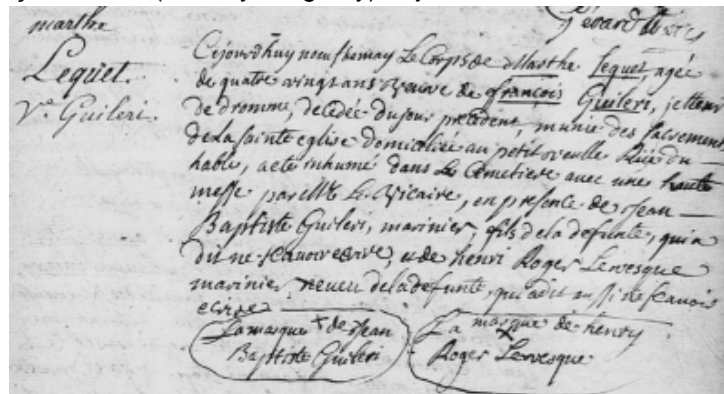 marthe
Lequet.
Ve Guileri.
Cejourd'huy neuf de may Le Corps de Marthe Lequet agée
de quatre vingt ans veuve de françois Guileri, jetteur
de dromme, decedée du jour précedent, munie des sacremens
de la sainte eglise domiciliée au petit veulle Rüe du
hable, a eté inhumé dans Le Cemetiere avec une haute
messe par Mr Le Vicaire, en presence de Jean
Baptiste Guileri, marinier, fils de la defunte, qui a
dit ne scavoir ecrire, et de henri Roger Levesque
marinier neveu de la defunte, qui a dit aussi ne scavoir
ecrire
La marque + de Jean
Baptiste Guileri
La marque de henry
x
Roger Levesque